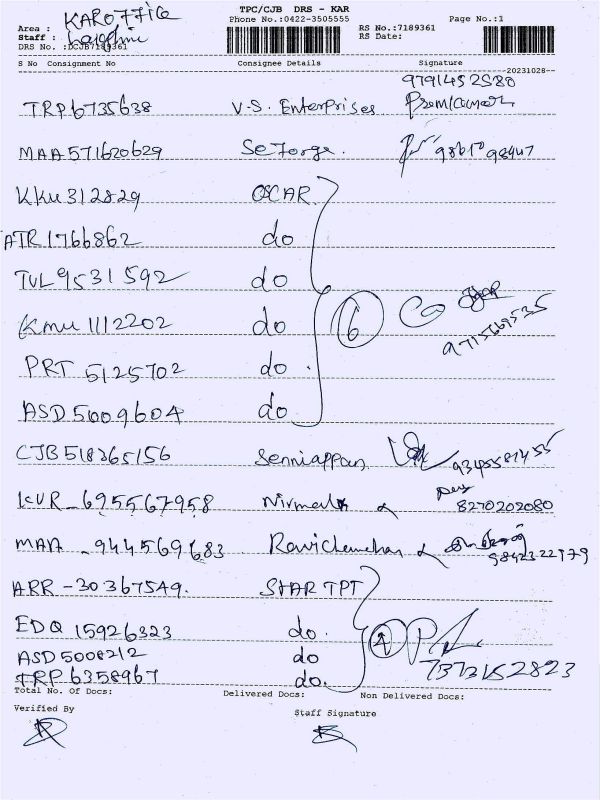 TPC/CJB DRS - KAR
Phone No.:0422-3505555
Page No.:1
Area : KAR OFFICE
Staff :
RS No.:7189361
RS Date:
DRS No. :DCJB7189361
S No Consignment No Consignee Details Signature
--20231028--
9791452580
TRP6735638 V.S. Enterprises Premkumar
MAA571620629 Seforge.
KKU312829 OSCAR
ATR1766862 do
TUL9531592 do
KMU1112202 do 6
PRT 5125702 do 9715669535
ASD5009604 do
CJB518265156 Senniappan 9345581455
KUR-695567958 Nirmala 8270202080
MAA-944569683 Ravichandran 9842322979
ARR-30367549. STAR TPT
EDQ 15926323 do. 4
ASD5008212 do 7373152823
TRP6358967 do.
Total No. Of Docs: Delivered Docs: Non Delivered Docs:
Verified By Staff Signature